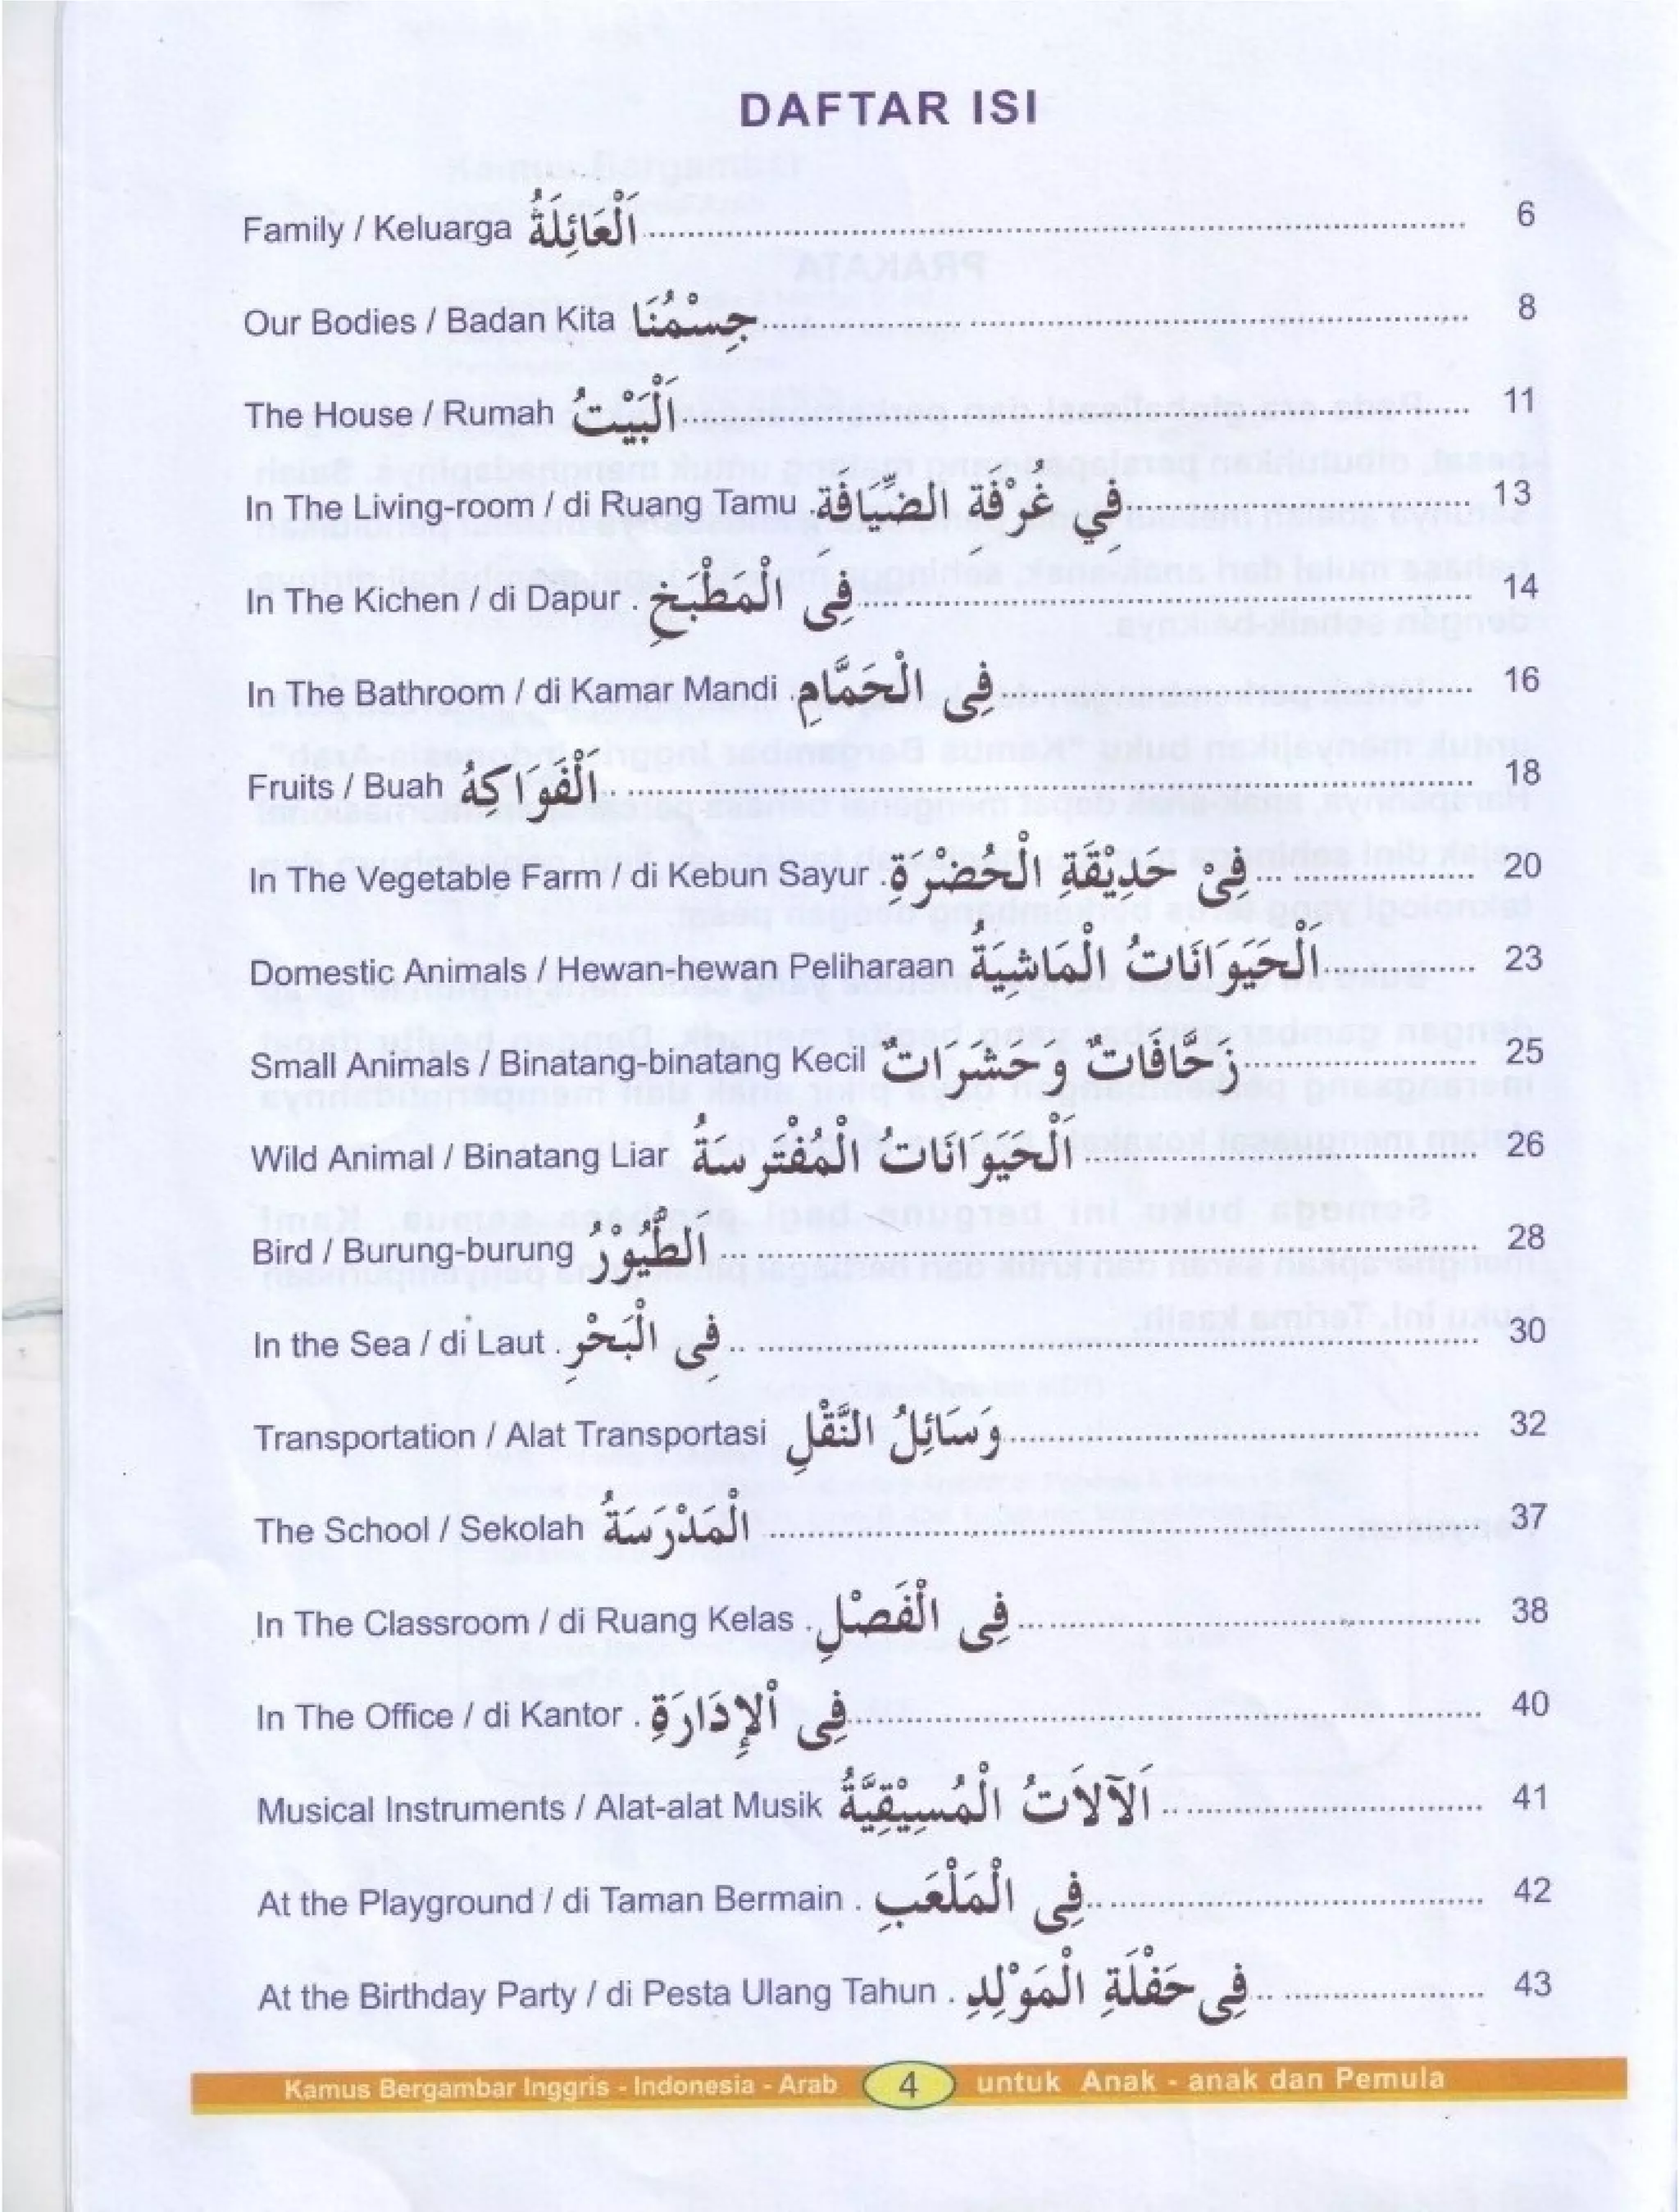 DAFTAR ISI
Family / Keluarga اَلْعَائِلَةُ ........ 6
Our Bodies / Badan Kita جِسْمُنَا ........ 8
The House / Rumah اَلْبَيْتُ ........ 11
In The Living-room / di Ruang Tamu فِي غُرْفَةِ الضِّيَافَةِ ........ 13
In The Kichen / di Dapur . فِى الْمَطْبَخِ ........ 14
In The Bathroom / di Kamar Mandi . فِى الْحَمَّامِ ........ 16
Fruits / Buah اَلْفَوَاكِهُ ........ 18
In The Vegetable Farm / di Kebun Sayur . فِىْ حَدِيْقَةِ الْخُضْرَةِ ........ 20
Domestic Animals / Hewan-hewan Peliharaan اَلْحَيَوَانَاتُ الْمَاشِيَةُ ........ 23
Small Animals / Binatang-binatang Kecil زَحَّافَاتٌ وَحَشَرَاتٌ ........ 25
Wild Animal / Binatang Liar اَلْحَيَوَانَاتُ الْمُفْتَرِسَةُ ........ 26
Bird / Burung-burung اَلطُّيُوْرُ ........ 28
In the Sea / di Laut . فِى الْبَحْرِ ........ 30
Transportation / Alat Transportasi وَسَائِلُ النَّقْلِ ........ 32
The School / Sekolah الْمَدْرَسَةُ ........ 37
In The Classroom / di Ruang Kelas . فِى الْفَصْلِ ........ 38
In The Office / di Kantor . فِى اْلإِدَارَةِ ........ 40
Musical Instruments / Alat-alat Musik اَلآلاَتُ الْمُسِيْقِيَّةُ ........ 41
At the Playground / di Taman Bermain . فِى الْمَلْعَبِ ........ 42
At the Birthday Party / di Pesta Ulang Tahun . فِى حَفْلَةِ الْمَوْلِدِ ........ 43
Kamus Bergambar Inggris - Indonesia - Arab 4 untuk Anak - anak dan Pemula